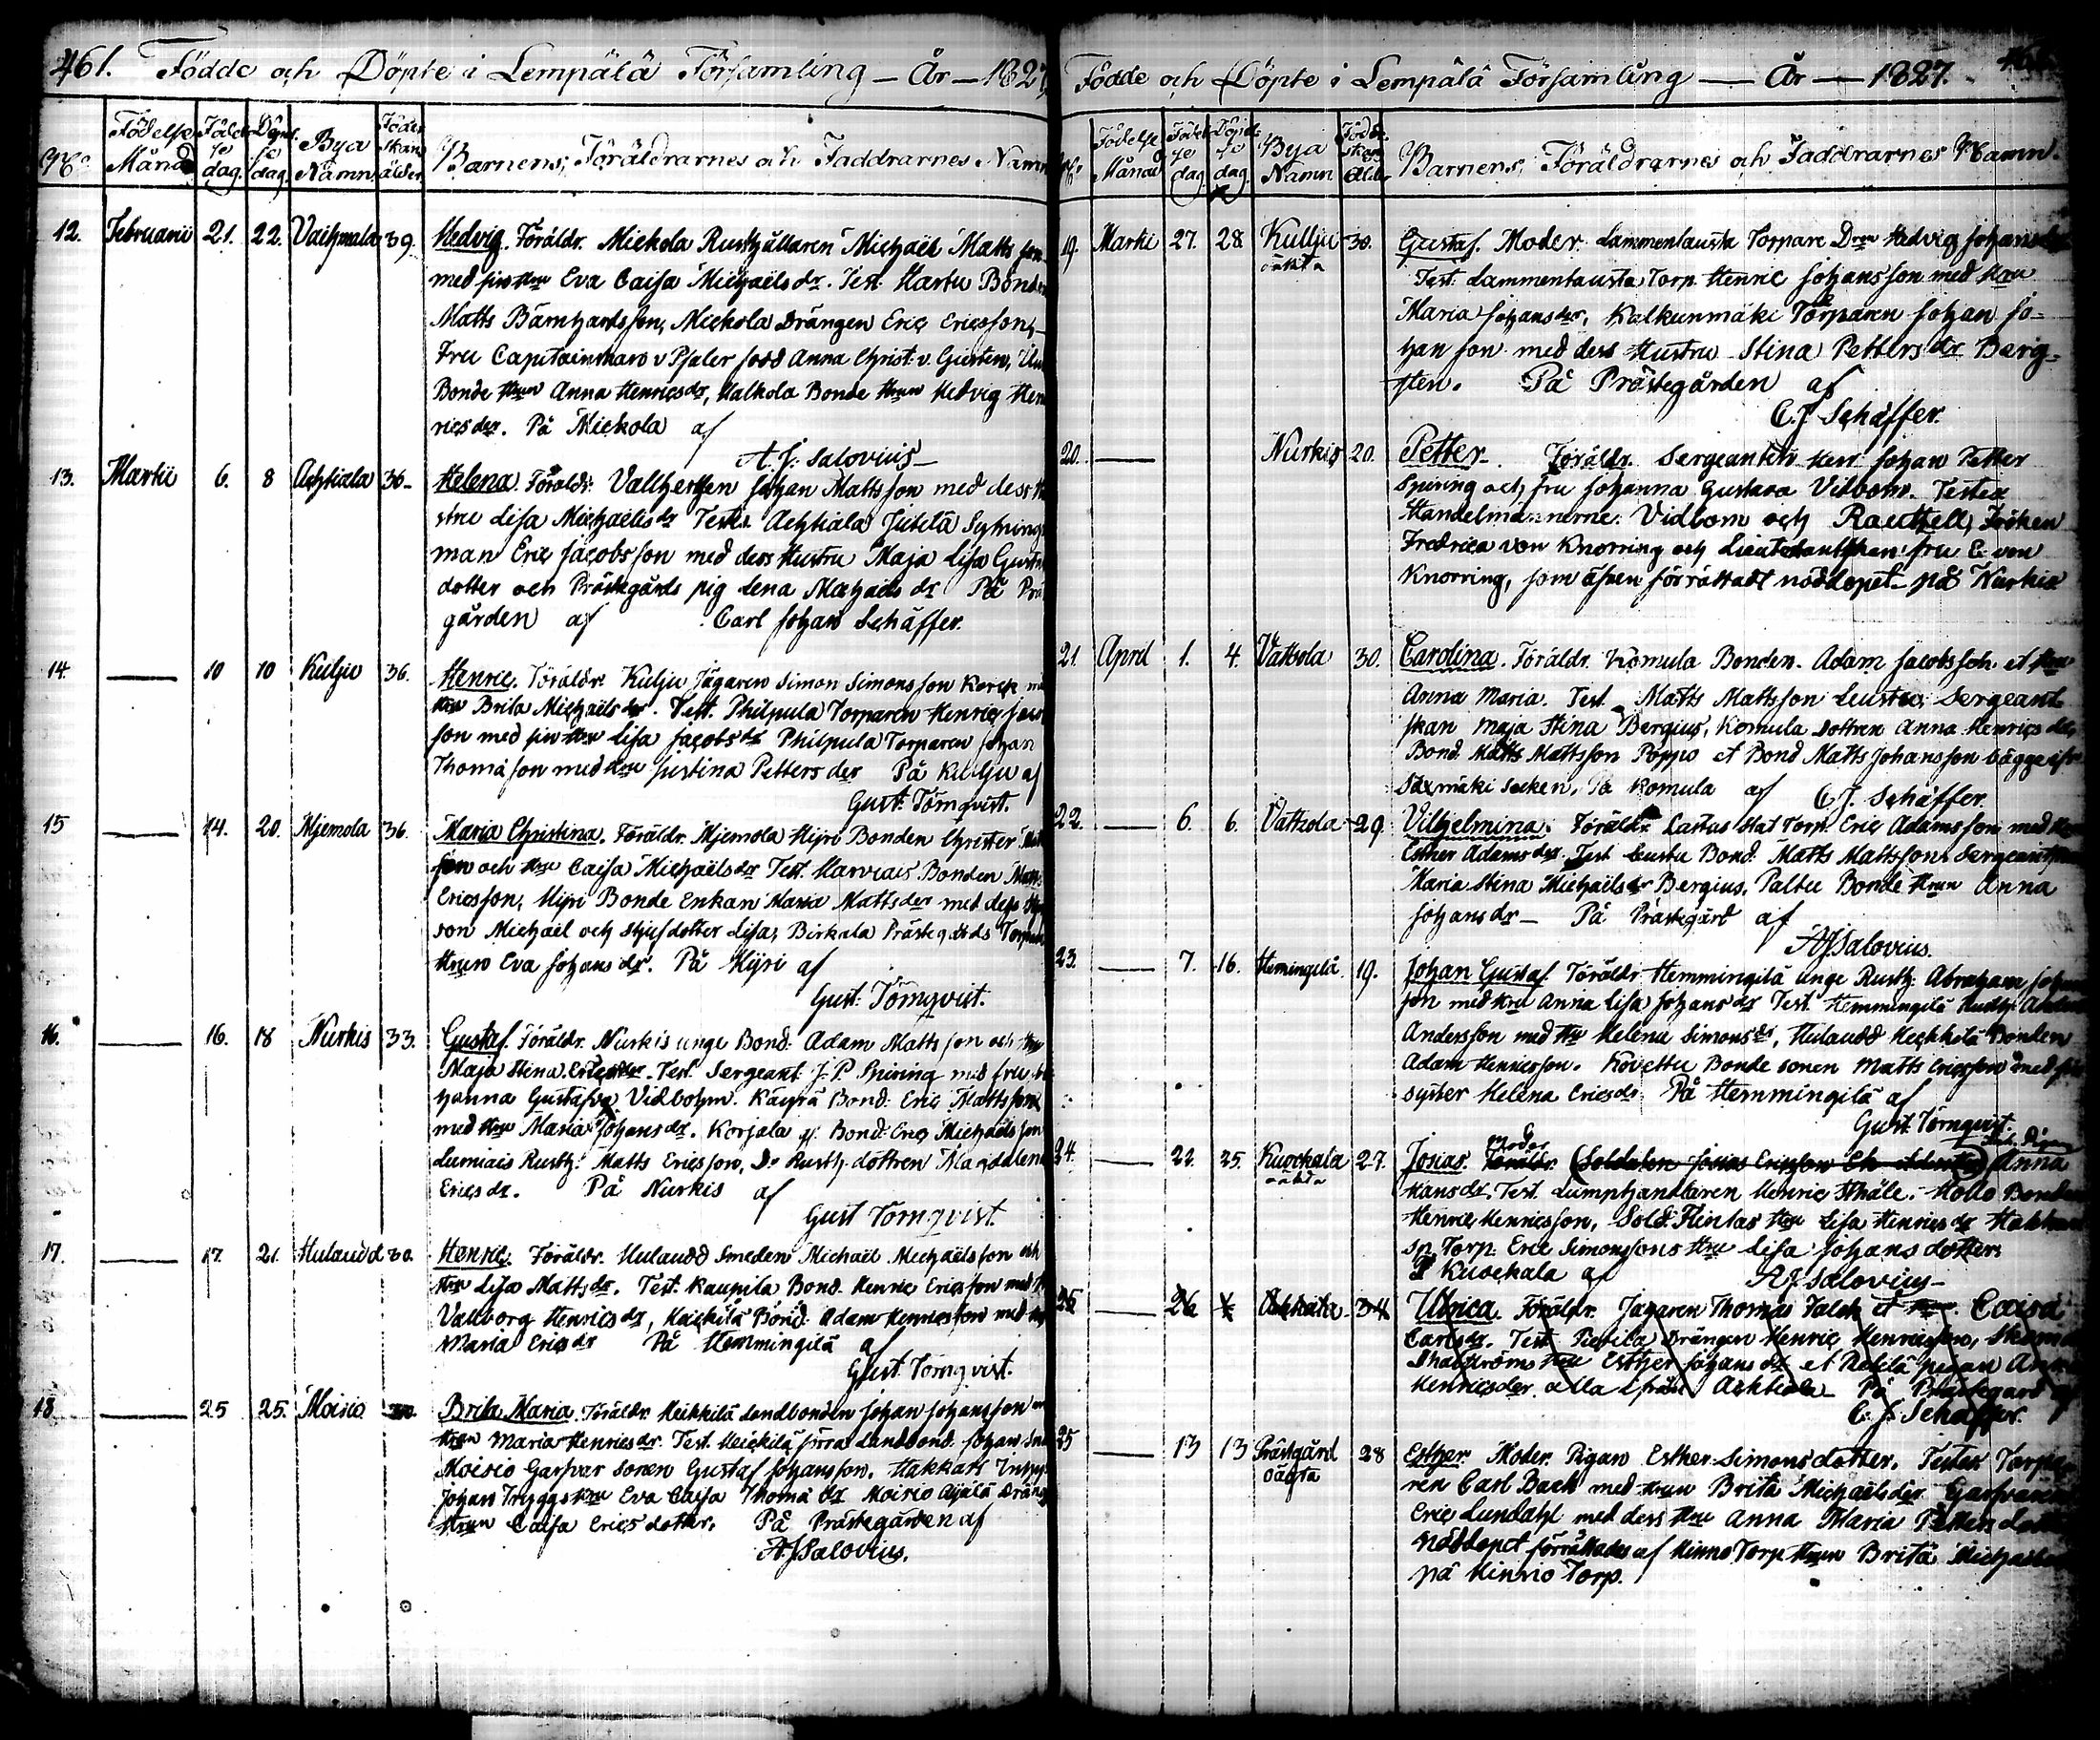 461. Födde och Döpte i Lempälä Församling – År – 1827
No Födelse Månad Födelse dag. Döpelse dag. Bya Namn Föderskans ålder Barnens, Föräldrarnes och Faddrarnes Namn
12. Februarii 21. 22. Vaihmala 39. Hedvig. Föräldr. Mickola Rusthållaren Michaël Matts son
med sin Hru Eva Caisa Michaëls dr. Test. Hartu Bonden
Matts Bärnhards son, Mickola Drängen Eric Ericsson,
Fru Capitainskan v Psaler född Anna Christ. v. Gerten,
Bonde Hrun Anna Henrics dr, Halkola Bonde Hrun Hedvig Hen
rics der. På Mickola af
A. J. Salovius
13. Martii 6. 8 Achtiala 36 Helena. Föräldr. Vallherden Johan Matts son med dess
stru Lisa Michaëlis dr Testes Achtiala Sytnings
man Eric Jacobs son med dess Hustru Maja Lisa Gust
dotter och Prästegårds pig Lena Michaels dr På Prä
gården af Carl Johan Schäffer.
14. — 10 10 Kulju 36. Henric. Föräldr. Kulju Jägaren Simon Simonsson Korck
Hru Brita Michaëls der. Test. Philpula Torparen Henric
son med sin Hru Lisa Jacobs dr Philpula Torparen Johan
Thomæ son med Hru Justina Petters der På Kulju af
Gust: Törnqvist.
15 — 14. 20. Mjemola 36. Maria Christina. Föräldr. Mjemola Hyri Bonden Christer
son och Hru Caisa Michaëls dr Test. Bonden Matts
Ericsson, Hyri Bonde Enkan Maria Matts der med dess
son Michaël och styfdotter Lisa, Birkala Prästegårds Torpare
Hrun Eva Johans dr. På Hyri af
Gust: Törnqvist.
16. — 16. 18 Nurkis 33. Gustaf. Föräldr. Nurkis unge Bond. Adam Matts son och Hru
Maja Stina Erics der. Test. Sergeant J. P. Spiring med fru
hanna Gustafva Vidbohm. Käyrä Bond: Eric Matts son
med Hru Maria Johans dr. Korjala Bond: Eric Michaëls son
Lumiais Rusth: Matts Ericsson, Do Rusth. dottren Magdalena
Erics dr. På Nurkis af
Gust Törnqvist.
17. — 17. 21. Hulaudd 30. Henric. Föräldr. Hulaudd Smeden Michaël Michaëlsson och
Hru Lisa Matts dr. Test. Kaupila Bond. Henric Ericsson med
Vallborg Henrics dr, Heickilä Bond: Adam Henricsson med
Maria Erics dr På Hemmingilä af
Gust. Törnqvist.
18 — 25 25. Moisio Brita Maria. Föräldr. Heikkilä Landbonden Johan Johansson
Hrun Maria Henrics dr. Test. Heickilä förra Landbond. Johan
Moisio Garfvar sonen Gustaf Johansson. Hakkari
Johan Tryggs Hru Eva Caisa Thomæ dr Moisio Äijälä Dräng
Hrun Caisa Erics dotter. På Prästegården af
A J Salovius.
Födde och Döpte i Lempälä Församling — År — 1827.
No Födelse Månad Födelse dag Döpelse dag Bya Namn Föderskans ålder Barnens, Föräldrarnes och Faddrarnes Namn.
19. Martii 27. 28 Kulju oäkta 30. Gustaf. Moder. Lammentausta Torpare Dren Hedvig Johans
Test. Lammentausta Torp. Henric Johansson med Hru
Maria Johans der, Kalkunmäki Torparen Johan Jo-
hansson med dess Hustru Stina Petters dr Berg-
sten. På Prästegården af
C. J. Schäffer.
20. — Nurkis 20. Petter. Föräldr. Sergeanten Herr Johan Petter
Spiring och fru Johanna Gustava Vidbom. Testes
Handelsmännerne. Vidbom och Raethell, Fröken
Fredrica von Knorring och Lieutenantskan fru E. von
Knorring, som äfven förrättadt nöddopet på Nurkis
21. April 1. 4. Vattola 30. Carolina. Föräldr. Komula Bonden. Adam Jacobsson et Hru
Anna Maria. Test. Matts Mattsson Leustu, Sergeant
skan Maja Stina Bergius, Komula Dottren Anna Henrics dr,
Bond. Matts Mattsson Poppo et Bond Matts Johansson bägge ifr
Säxmäki Socken. På Komula af C. J. Schäffer.
22. — 6. 6. Vattola 29. Vilhelmina. Föräldr. Lastus Stat Torp. Eric Adamsson med
Esther Adams der. Test. Leustu Bond. Matts Mattsson Sergeantskan
Maria Stina Michaëls dr Bergius, Paltu Bonde Hrun Anna
Johans dr — På Prästegård af
A J Salovius.
23. — 7. 16. Hemingilä 19. Johan Gustaf Föräldr. Hemmingilä unge Rusth. Abraham
son med Hru Anna Lisa Johans dr Test. Hemmingilä Rusth.
Andersson med Hru Helena Simons dr, Hulaudd Heckkilä Bonden
Adam Henricsson. Kovettu Bonde sonen Matts Ericsson med sin
syster Helena Erics dr. På Hemmingilä af
Gust. Törnqvist.
24. — 22. 25. Kuockala oäkta 27. Josias. Moder Föräldr. (Soldaten Josias Ericsson) Anna
Hans dr. Test. Lumphandlaren Henric Ståle. Hollo Bonden
Henric Henricsson, Sold. Flintas Hru Lisa Henrics dr
Torp. Eric Simonssons Hru Lisa Johans dotter.
P Kuockala af A J Salovius
25 — 26 Achtiala 34 Ulrica. Föräldr. Jägaren Thomas Falck et Hru Caisa
Carls dr. Test. Pietilä Drängen Henric Henricsson,
Hru Esther Johans dr et pigan
Henrics der alla ifrån Achtiala På Prästegård af
C. J. Schäffer.
25 — 13 13 Prästgård oächta 28 Esther. Moder. Pigan Esther Simonsdotter. Testes Torpa
ren Carl Back med Hrun Brita Michaëls der. Garfvaren
Eric Lundahl med dess Hru Anna Maria Petters dotter
nöddopet förrättades af Hinno Torp Hrun Brita Michaels
på Hinno Torp.